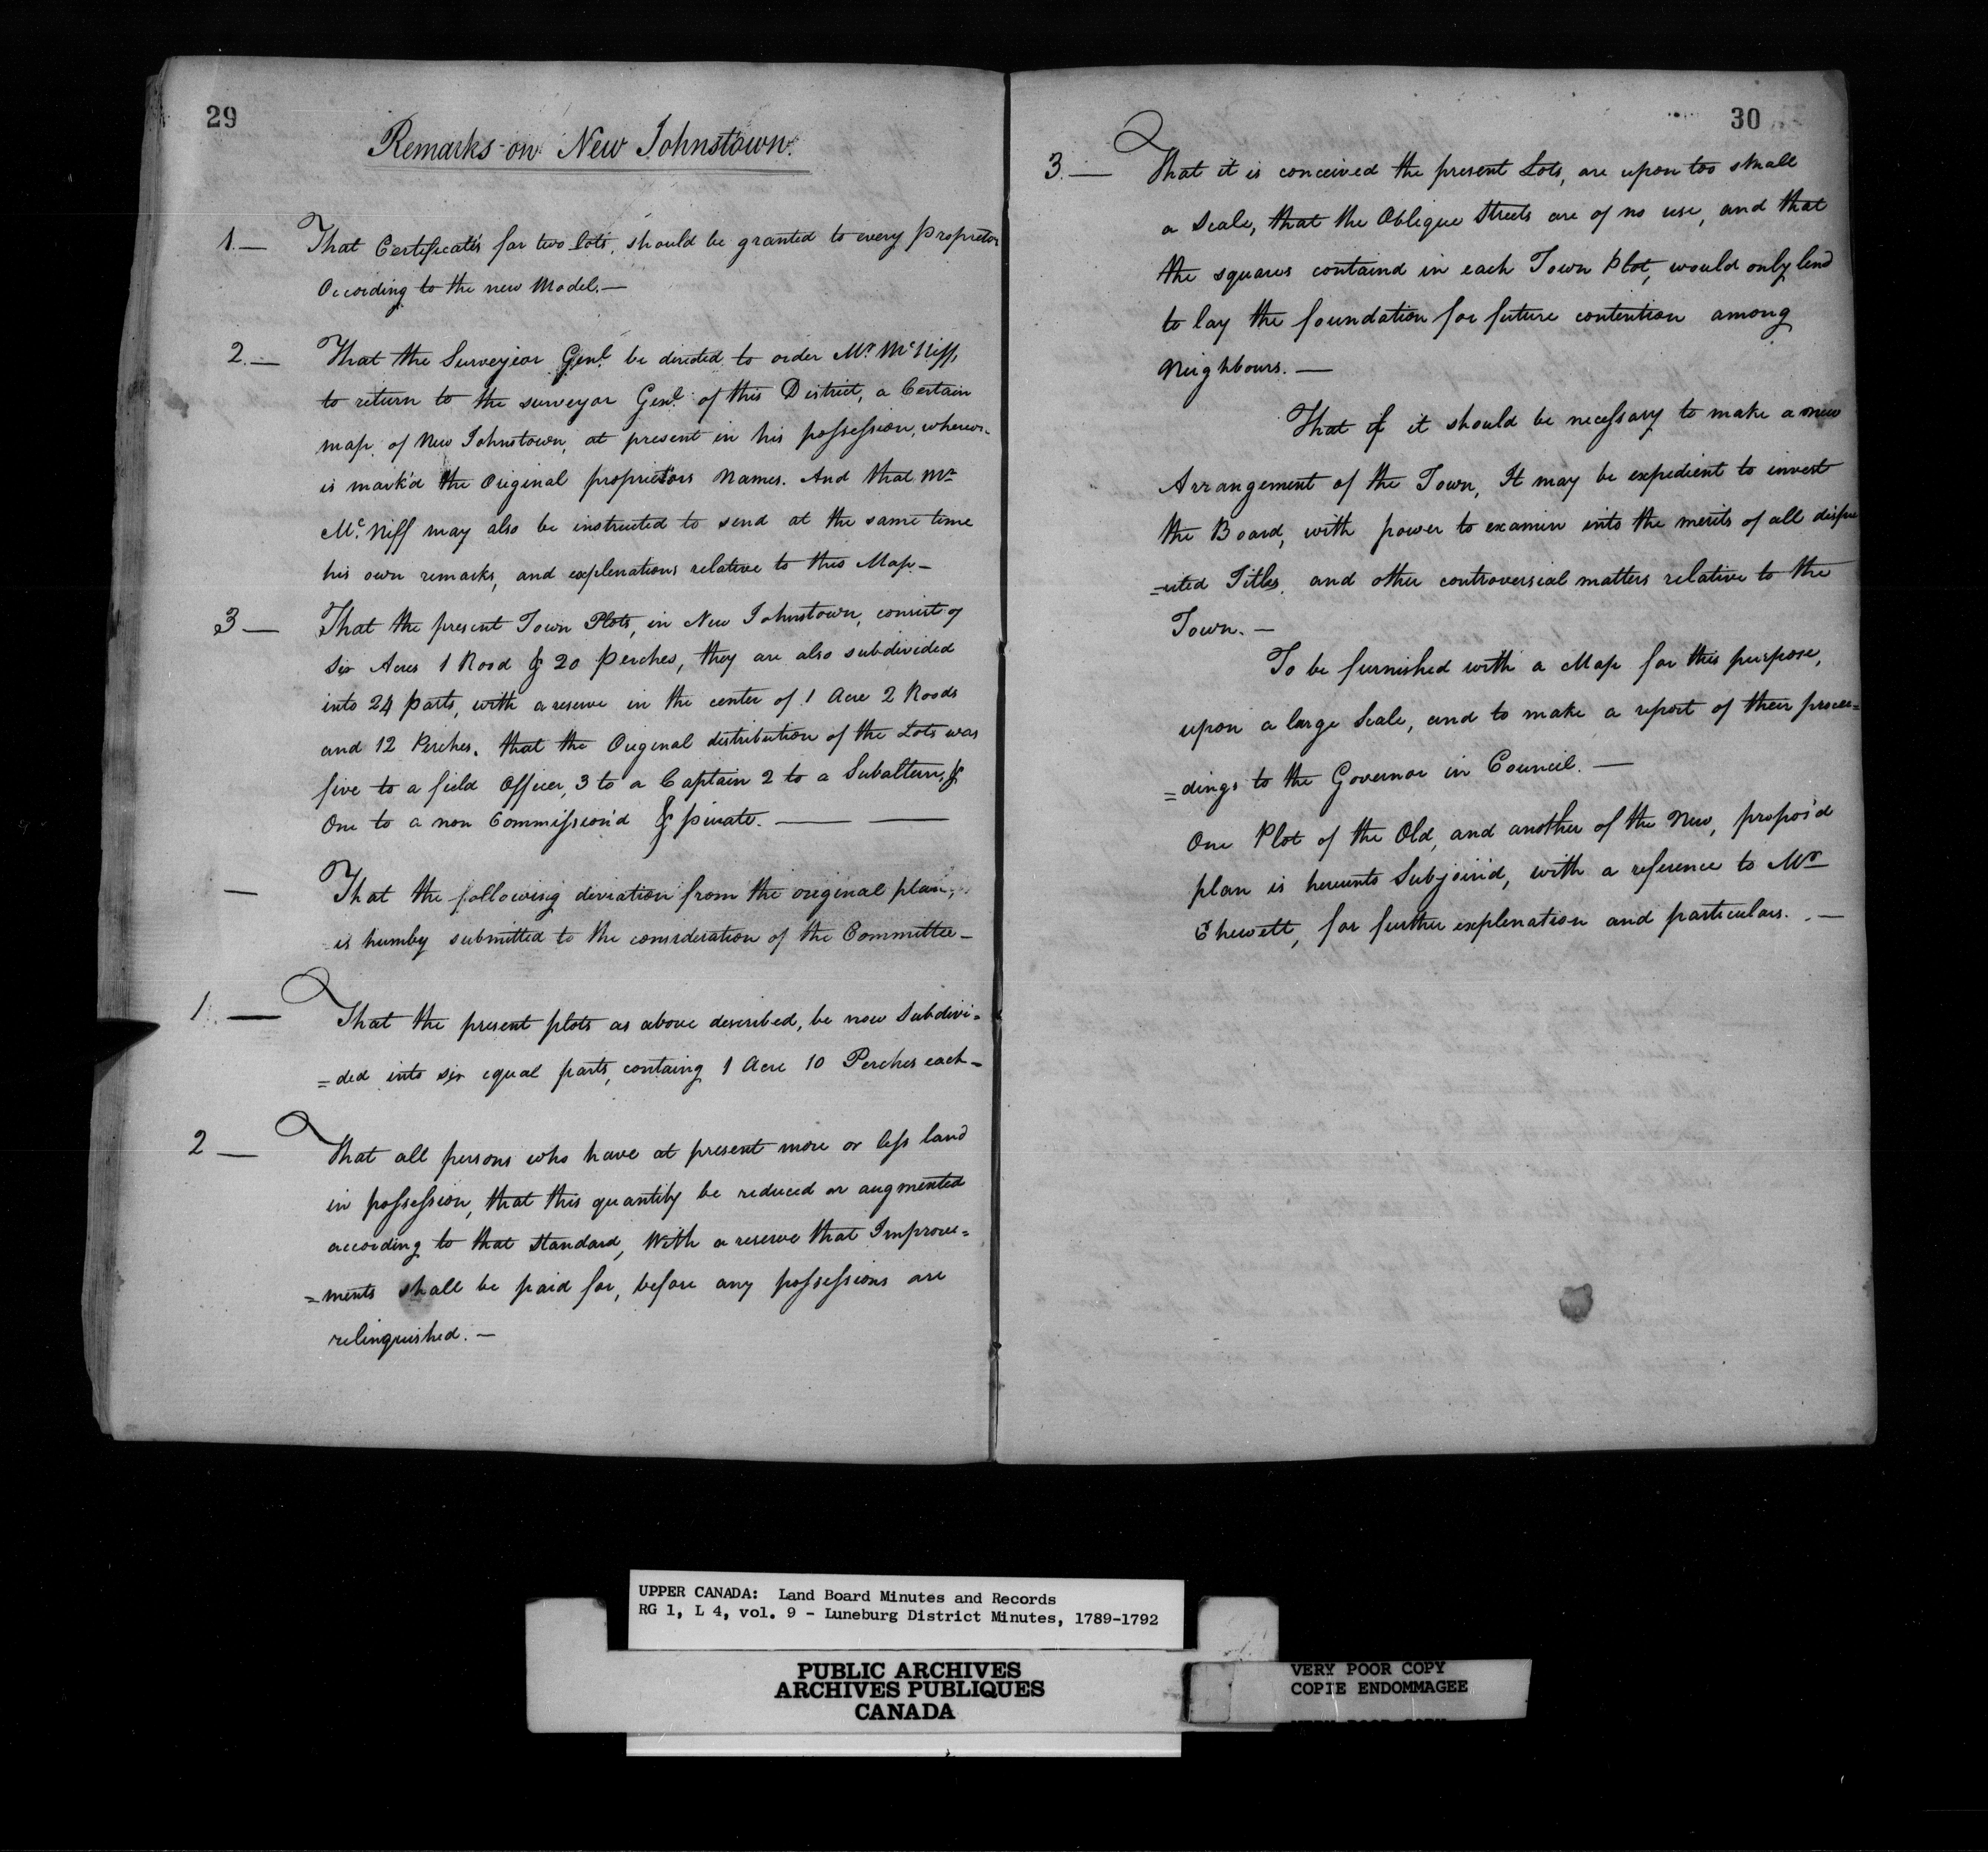 29
Remarks on New Johnstown.
1.— That Certificates for two lots, should be granted to every proprietor
According to the new Model.—
2.— That the Surveyior Genl. be directed to order Mr. McNiff,
to return to the surveyor Genl. of this District, a Certain
map of New Johnstown, at present in his possession, whereon
is mark'd the Original proprietors Names. And that Mr.
McNiff may also be instructed to send at the same time
his own remarks, and explenations relative to this Map—
3— That the present Town Plots, in New Johnstown, consist of
Six Acres 1 Rood & 20 perches, they are also subdivided
into 24 parts, with a reserve in the center of 1 Acre 2 Roods
and 12 Perches. that the Original distribution of the Lots was
five to a field Officer, 3 to a Captain 2 to a Subaltern, &
One to a non Commission'd & private. — —
— That the following deviation from the original plan,
is humby submitted to the consideration of the Committee—
1.— That the present plots as above described, be now Subdivi=
=ded into six equal parts, containg 1 Acre 10 Perches each—
2— That all persons who have at present more or less land
in possession, that this quantity be reduced or augmented
according to that standard, With a reserve that Improve=
=ments shall be paid for, before any possessions are
relinquished.—
30
3.— That it is conceived the present Lots, are upon too small
a Scale, that the Oblique Streets are of no use, and that
the squares containd in each Town Plot, would only tend
to lay the foundation for future contention among
Neighbours.—
That if it should be necessary to make a new
Arrangement of the Town, It may be expedient to invest
the Board, with power to examin into the merits of all disp
=uted Titles, and other controversial matters relative to the
Town.—
To be furnished with a Map for this purpose,
upon a large Scale, and to make a report of their procee=
=dings to the Governor in Council.—
One Plot of the Old, and another of the New, propos'd
plan is hereunto Subjoin'd, with a reference to Mr.
Chewett, for further explenation and particulars.—
UPPER CANADA: Land Board Minutes and Records
RG 1, L 4, vol. 9 - Luneburg District Minutes, 1789-1792
PUBLIC ARCHIVES
ARCHIVES PUBLIQUES
CANADA
VERY POOR COPY
COPIE ENDOMMAGEE
VERY POOR COPY